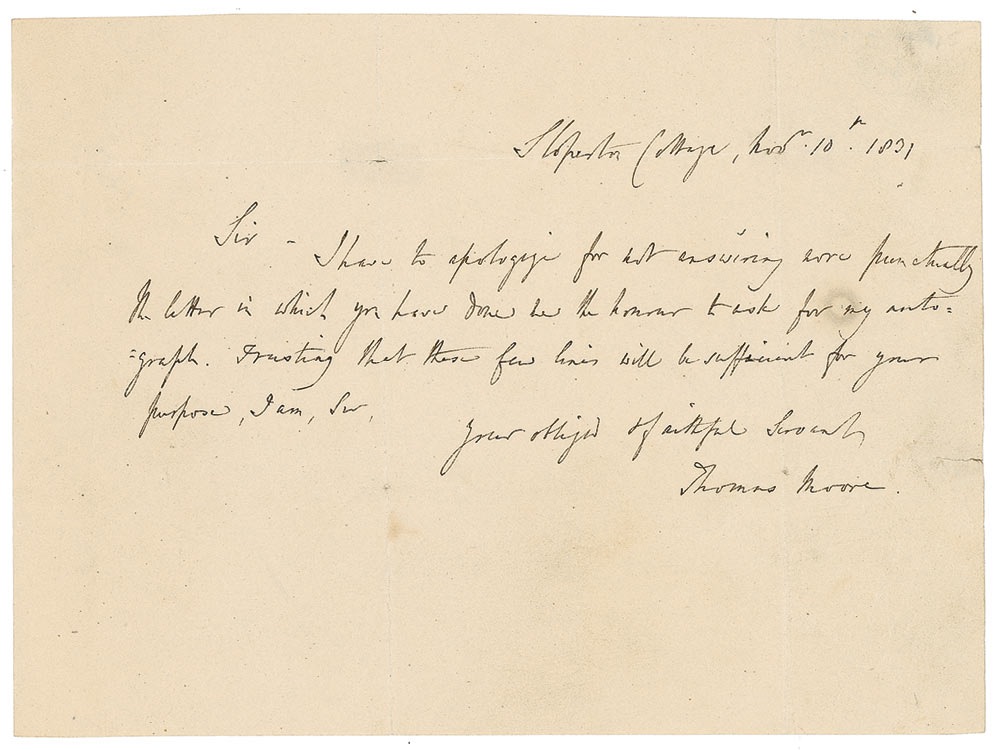 Sloperton Cottage, Novr. 10th. 1831
Sir - I have to apologize for not answering more punctually
the letter in which you have done me the honour to ask for my auto=
=graph. Trusting that these few lines will be sufficient for your
purpose, I am, Sir,
your obliged & faithful Servant,
Thomas Moore.